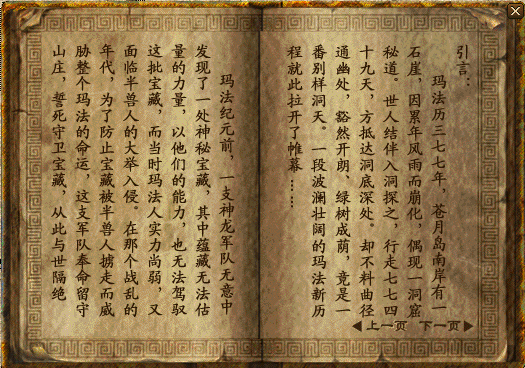 引言：
玛法历三七七年，苍月岛南岸有一
石崖，因累年风雨而崩化，偶现一洞窟
秘道。世人结伴入洞探之，行走七七四
十九天，方抵达洞底深处。却不料曲径
通幽处，豁然开朗、绿树成荫，竟是一
番别样洞天。一段波澜壮阔的玛法新历
程就此拉开了帷幕……
玛法纪元前，一支神龙军队无意中
发现了一处神秘宝藏，其中蕴藏无法估
量的力量，以他们的能力，也无法驾驭
这批宝藏，而当时玛法人实力尚弱，又
面临半兽人的大举入侵。在那个战乱的
年代，为了防止宝藏被半兽人掳走而威
胁整个玛法的命运，这支军队奉命留守
山庄，誓死守卫宝藏，从此与世隔绝
上一页 下一页